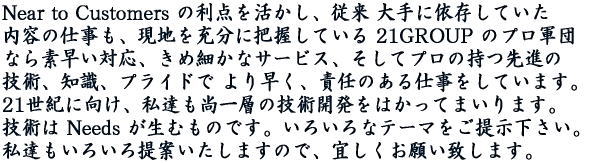 Near to Customers の利点を活かし、従来 大手に依存していた
内容の仕事も、現地を充分に把握している 21GROUP のプロ軍団
なら素早い対応、きめ細かなサービス、そしてプロの持つ先進の
技術、知識、プライドで より早く、責任のある仕事をしています。
21世紀に向け、私達も尚一層の技術開発をはかってまいります。
技術は Needs が生むものです。いろいろなテーマをご提示下さい。
私達もいろいろ提案いたしますので、宜しくお願い致します。